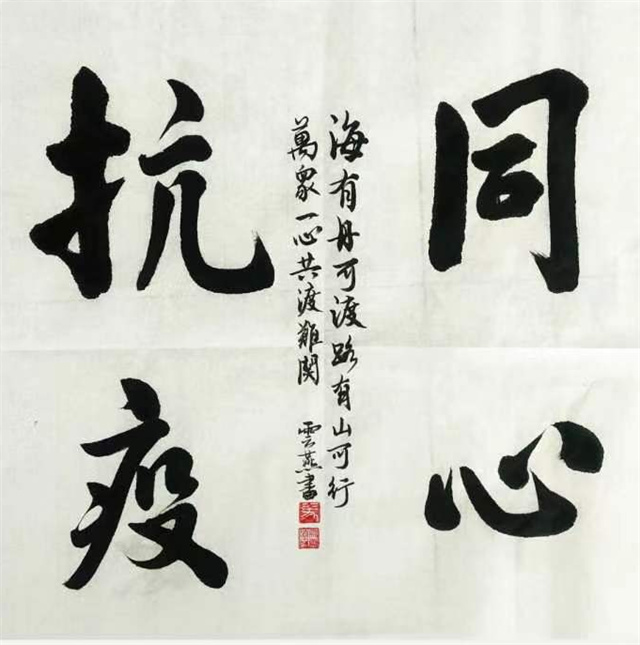 同心
海有舟可渡路有山可行
萬眾一心共渡難関
雲燕書
抗疫